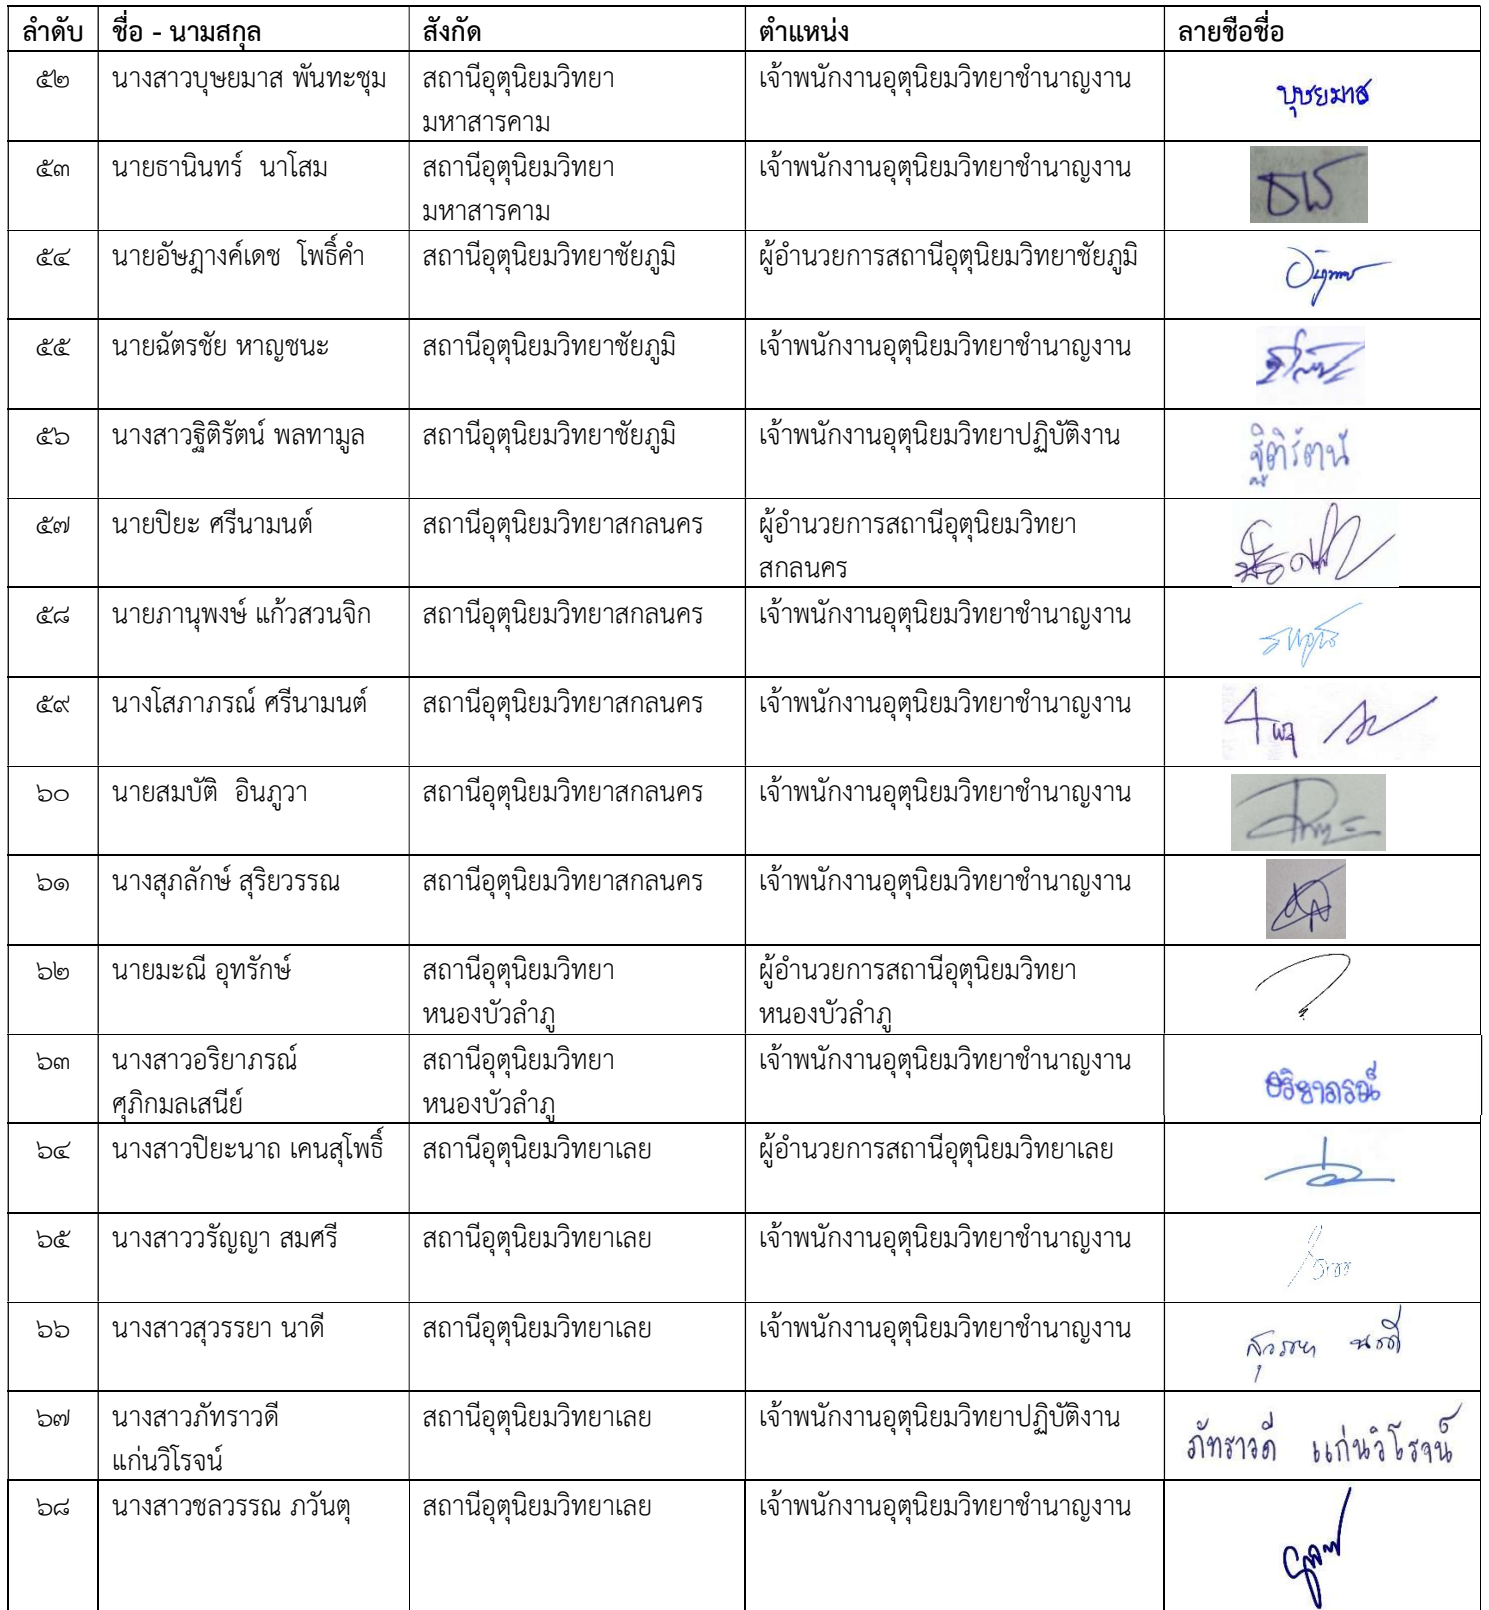 ลำดับ ชื่อ - นามสกุล สังกัด ตำแหน่ง ลายชือชื่อ
๕๒ นางสาวบุษยมาส พันทะชุม สถานีอุตุนิยมวิทยา เจ้าพนักงานอุตุนิยมวิทยาชำนาญงาน บุษยมาส
มหาสารคาม
๕๓ นายธานินทร์ นาโสม สถานีอุตุนิยมวิทยา เจ้าพนักงานอุตุนิยมวิทยาชำนาญงาน
มหาสารคาม
๕๔ นายอัษฎางค์เดช โพธิ์คำ สถานีอุตุนิยมวิทยาชัยภูมิ ผู้อำนวยการสถานีอุตุนิยมวิทยาชัยภูมิ
๕๕ นายฉัตรชัย หาญชนะ สถานีอุตุนิยมวิทยาชัยภูมิ เจ้าพนักงานอุตุนิยมวิทยาชำนาญงาน
๕๖ นางสาวฐิติรัตน์ พลทามูล สถานีอุตุนิยมวิทยาชัยภูมิ เจ้าพนักงานอุตุนิยมวิทยาปฏิบัติงาน ฐิติรัตน์
๕๗ นายปิยะ ศรีนามนต์ สถานีอุตุนิยมวิทยาสกลนคร ผู้อำนวยการสถานีอุตุนิยมวิทยา
สกลนคร
๕๘ นายภานุพงษ์ แก้วสวนจิก สถานีอุตุนิยมวิทยาสกลนคร เจ้าพนักงานอุตุนิยมวิทยาชำนาญงาน
๕๙ นางโสภาภรณ์ ศรีนามนต์ สถานีอุตุนิยมวิทยาสกลนคร เจ้าพนักงานอุตุนิยมวิทยาชำนาญงาน
๖๐ นายสมบัติ อินภูวา สถานีอุตุนิยมวิทยาสกลนคร เจ้าพนักงานอุตุนิยมวิทยาชำนาญงาน
๖๑ นางสุภลักษ์ สุริยวรรณ สถานีอุตุนิยมวิทยาสกลนคร เจ้าพนักงานอุตุนิยมวิทยาชำนาญงาน
๖๒ นายมะณี อุทรักษ์ สถานีอุตุนิยมวิทยา ผู้อำนวยการสถานีอุตุนิยมวิทยา
หนองบัวลำภู หนองบัวลำภู
๖๓ นางสาวอริยาภรณ์ สถานีอุตุนิยมวิทยา เจ้าพนักงานอุตุนิยมวิทยาชำนาญงาน อริยาภรณ์
ศุภิกมลเสนีย์ หนองบัวลำภู
๖๔ นางสาวปิยะนาถ เคนสุโพธิ์ สถานีอุตุนิยมวิทยาเลย ผู้อำนวยการสถานีอุตุนิยมวิทยาเลย
๖๕ นางสาววรัญญา สมศรี สถานีอุตุนิยมวิทยาเลย เจ้าพนักงานอุตุนิยมวิทยาชำนาญงาน
๖๖ นางสาวสุวรรยา นาดี สถานีอุตุนิยมวิทยาเลย เจ้าพนักงานอุตุนิยมวิทยาชำนาญงาน สุวรรยา นาดี
๖๗ นางสาวภัทราวดี สถานีอุตุนิยมวิทยาเลย เจ้าพนักงานอุตุนิยมวิทยาปฏิบัติงาน ภัทราวดี แก่นวิโรจน์
แก่นวิโรจน์
๖๘ นางสาวชลวรรณ ภวันตุ สถานีอุตุนิยมวิทยาเลย เจ้าพนักงานอุตุนิยมวิทยาชำนาญงาน